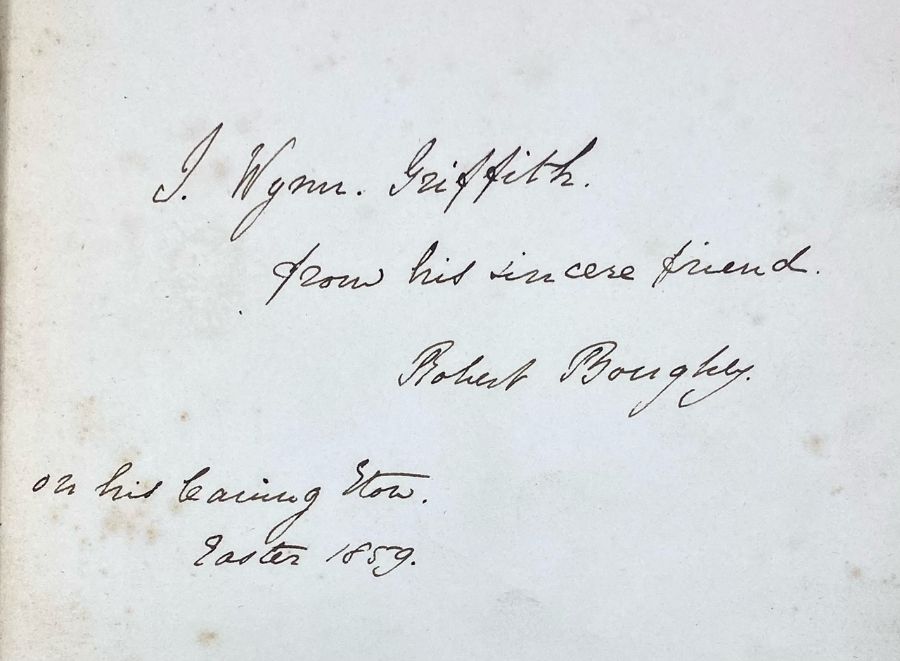 J. Wynn. Griffith.
from his sincere friend.
Robert Boughey.
on his leaving Eton.
Easter 1859.